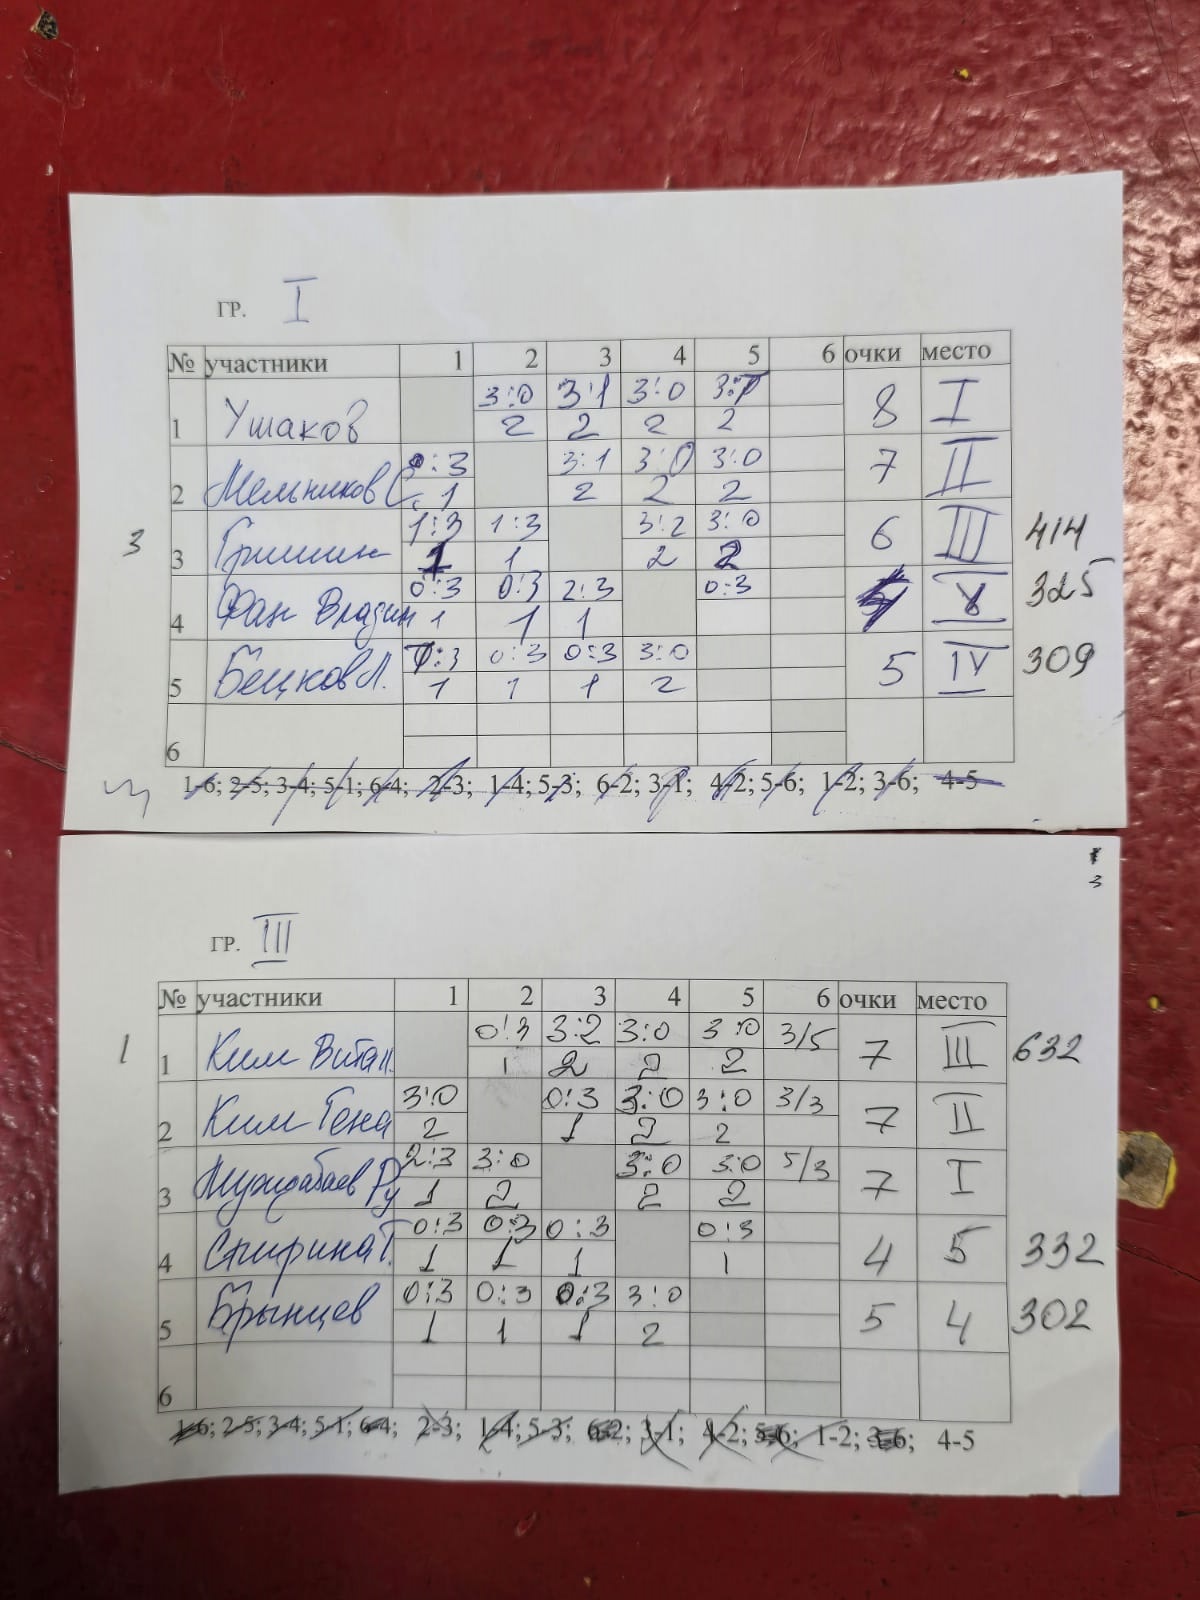 ГР. I
№ участники 1 2 3 4 5 6 очки место
3:0 3:1 3:0
1 Ушаков 2 2 2 2 8 I
0:3 3:1 3:0 3:0
2 Мельников С. 1 2 2 2 7 II
1:3 1:3 3:2 3:0
3 3 Гришин 1 1 2 2 6 III 414
0:3 0:3 2:3 0:3
4 Фан Владим 1 1 1 V 325
0:3 0:3 3:0
5 Бецков Л. 1 1 1 2 5 IV 309
6
1-6; 2-5; 3-4; 5-1; 6-4; 2-3; 1-4; 5-3; 6-2; 3-1; 4-2; 5-6; 1-2; 3-6; 4-5
3
ГР. III
№ участники 1 2 3 4 5 6 очки место
0:3 3:2 3:0 3:0 3/5
1 1 Ким Витал. 1 2 2 2 7 III 632
3:0 0:3 3:0 3:0 3/3
2 Ким Гена 2 1 2 2 7 II
2:3 3:0 3:0 3:0 5/3
3 Муждабаев Ру 1 2 2 2 7 I
0:3 0:3 0:3 0:3
4 Спирина Г. 1 1 1 1 4 5 332
0:3 0:3 0:3 3:0
5 Брынцев 1 1 1 2 5 4 302
6
1-6; 2-5; 3-4; 5-1; 6-4; 2-3; 1-4; 5-3; 6-2; 3-1; 4-2; 5-6; 1-2; 3-6; 4-5